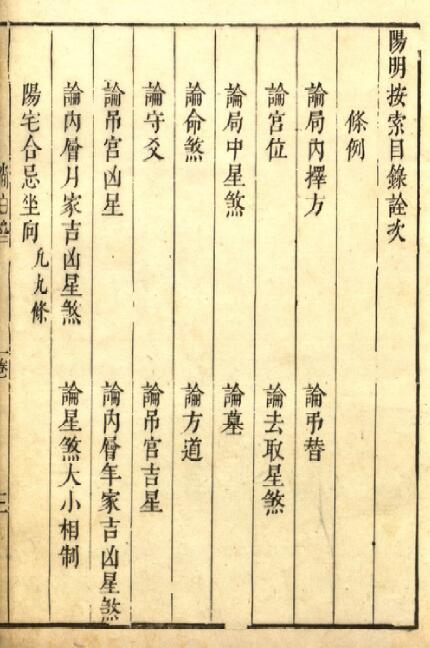 陽明按索目錄詮次
條例
論局內擇方　論弔替
論宮位　論去取星煞
論局中星煞　論墓
論命煞　論方道
論守爻　論吊宮吉星
論吊宮凶星　論內層年家吉凶星煞
論內層月家吉凶星煞　論星煞大小相制
陽宅合忌坐向　凡九條
一卷　三